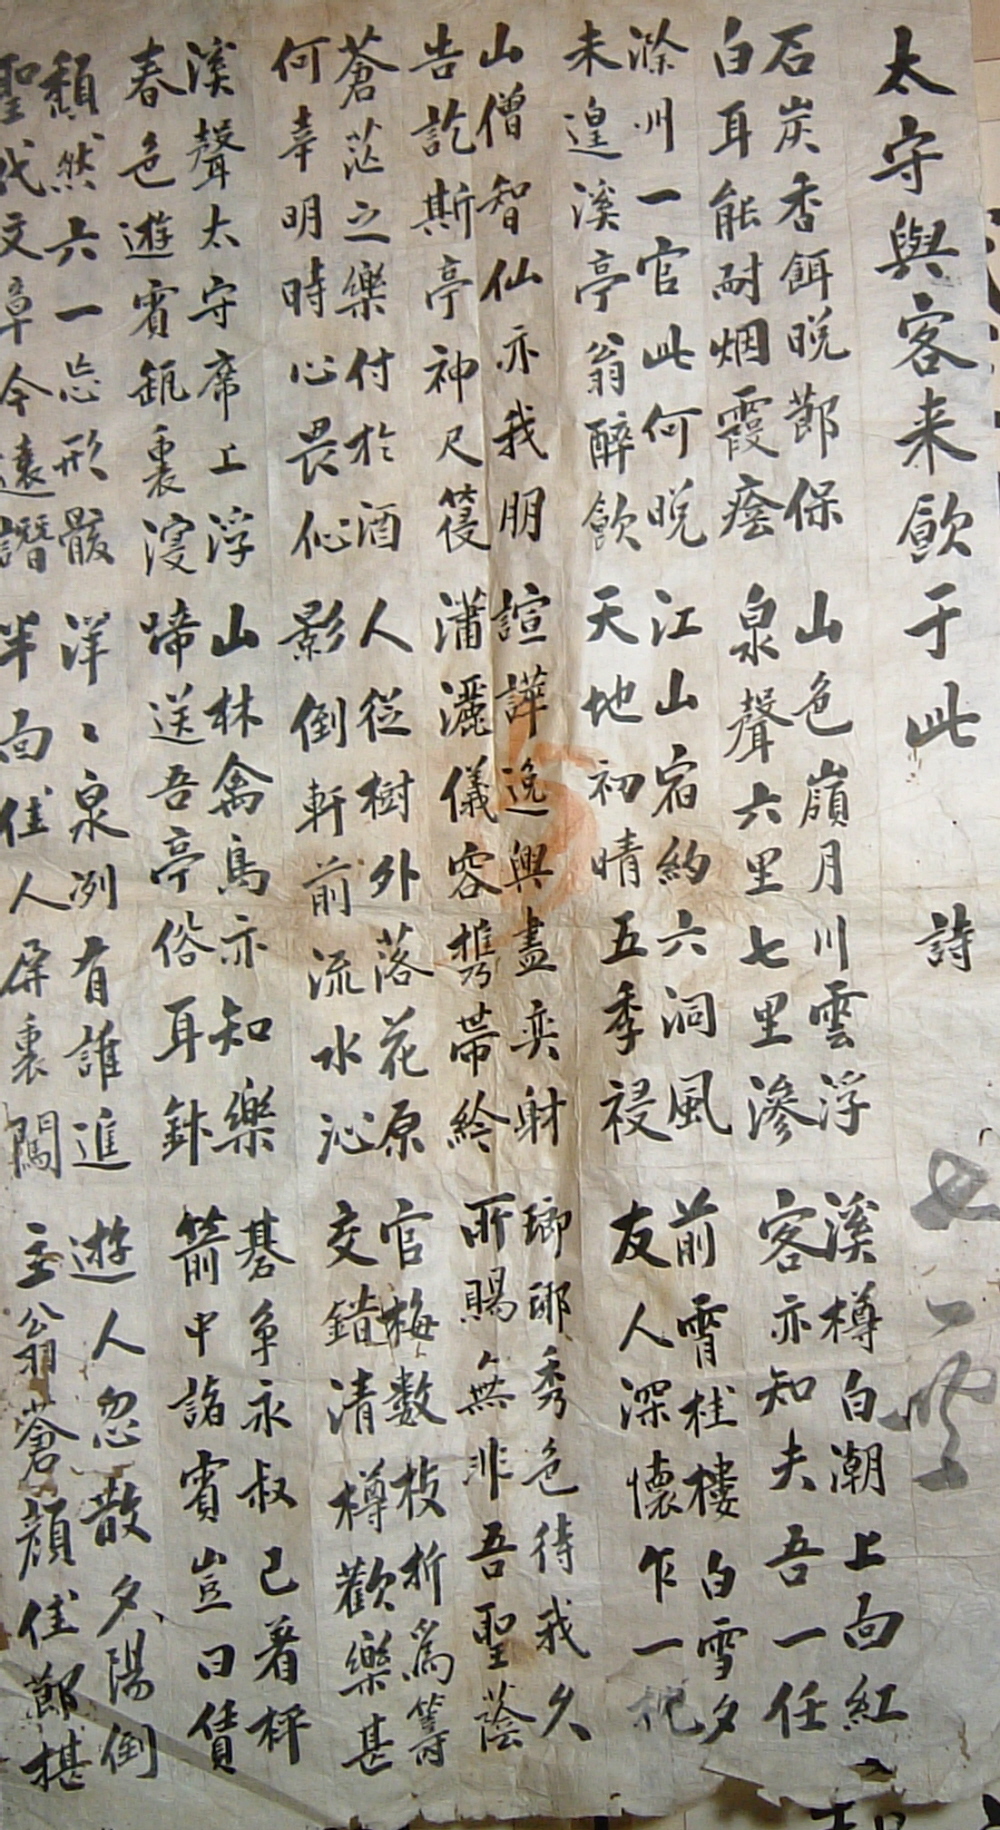 太守與客来飮于此 詩 七一
石炭香餌晩節保 山色嶺月川雲浮 溪樽白潮上向紅
白耳能耐烟霞癊 泉聲六里七里滲 客亦知夫吾一任
滁州一官此何晩 江山宿約六洞風 前霄桂樓白雪夕
未遑溪亭翁醉飮 天地初晴五季祲 友人深懷乍一
山僧智仙亦我朋 諠譁逸興盡奕射 瑯琊秀色待我久
告訖斯亭神尺 瀟灑儀容携帶紟 所賜無非吾聖蔭
蒼茫之樂付於酒 人從樹外落花原 官梅數枝折爲籌
何幸明時心畏伈 影倒軒前流水沁 交錯清樽歡樂甚
溪聲太守席上浮 山林禽鳥亦知樂 碁争永叔已着枰
春色遊賓甁裏浸 啼送吾亭俗耳 箭中諸賓豈曰賃
頹然六一忘形骸 洋〻泉冽有誰進 遊人忽散夕陽倒
聖代文章今遠譖 半向佳人屏裏闖 主翁蒼顔佳節揕